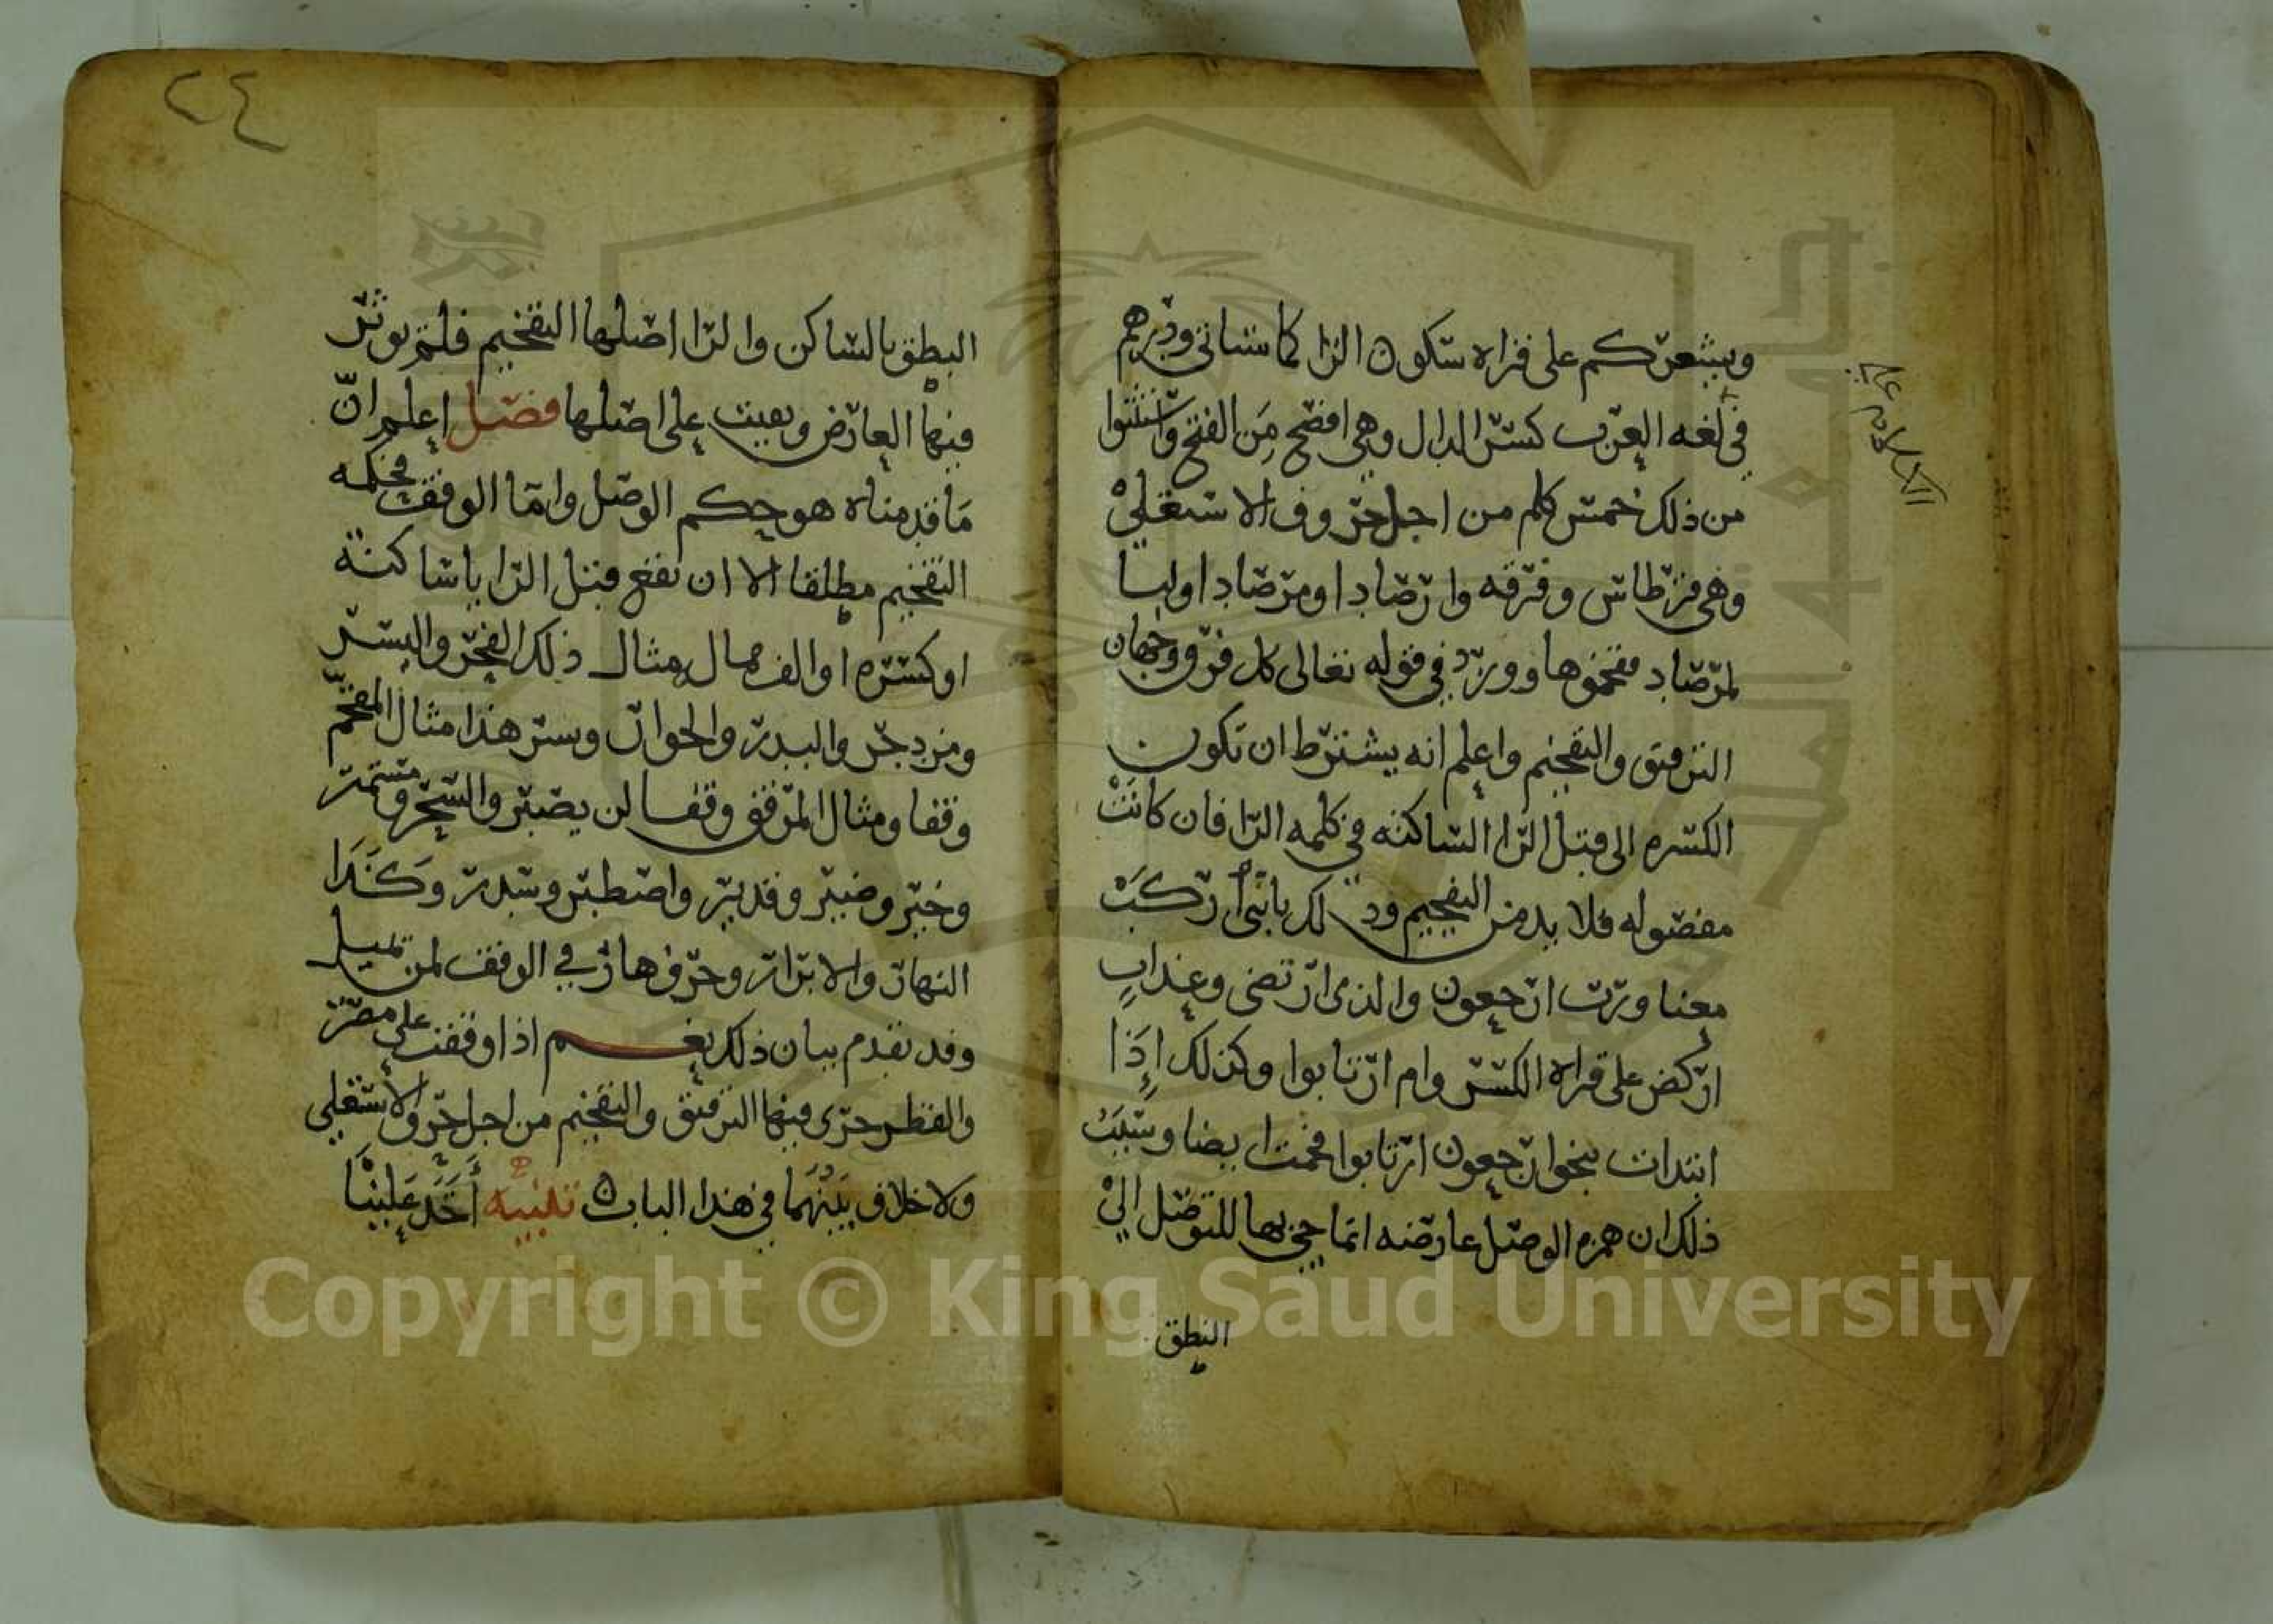 ويشعركم على قراه سكون الرا كما سياتي ودرهم
في لغه العرب كسر الدال وهي افصح من الفتح واستثنوا
من ذلك خمس كلم من اجل حروف الاستعلي
وهي قرطاس وفرقه وارصادا ومرصادا ولبا
لمرصاد ففخموها وورد في قوله تعالى كل فرق وجهان
الترقيق والتفخيم واعلم انه يشترط ان تكون
الكسره الى قبل الرا الساكنه في كلمه الرا فان كانت
مفصوله فلا بد من التفخيم وذلك يابني اركب
معنا ورب ارجعون والذي ارتضى وعذاب
اركض على قراه الكسر وام ارتابوا وكذلك إذا
ابتدات بنحو ارجعون ارتابوا فخمت ايضا وسبب
ذلك ان همزه الوصل عارضه انما جي بها للتوصل الي
النطق
٢٤
النطق بالساكن والرا اصلها التفخيم فلم يوثر
فيها العارض وبقيت على اصلها فصل اعلم انّ
ما قدمناه هو حكم الوصل واما الوقف فحكمه
التفخيم مطلقا الا ان تقع قبل الرا ياساكنة
او كسره او الف ممال مثال ذلك الفجر واليسر
ومزدجر والبدر والجوار ويسر هذا مثال المفخّم
وقفا ومثال المرقق وقفا لن يصير والسحر ومستمر
وخير وضير وقدير واصطبر وسدر وكذا
النهار والابرار وحرف هار في الوقف لمن يميل
وقد تقدم بيان ذلك نعم اذا وقفت على مصر
والقطر جرى فيها الترقيق والتفخيم من اجل حرف الاستعلي
ولا خلاف بينهما في هذا الباب تنبيه أخذ علينا
Copyright © King Saud University